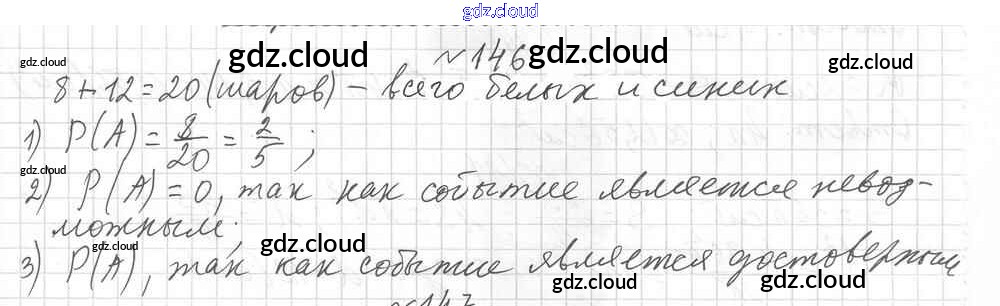 gdz.cloud
№146
8+12=20 (шаров) – всего белых и синих
1) P(A) = 8/20 = 2/5 ;
2) P(A) = 0, так как событие является невоз-
можным;
3) P(A), так как событие является достоверным
№147
gdz.cloud
gdz.cloud
gdz.cloud
gdz.cloud
gdz.cloud
gdz.cloud
gdz.cloud
gdz.cloud